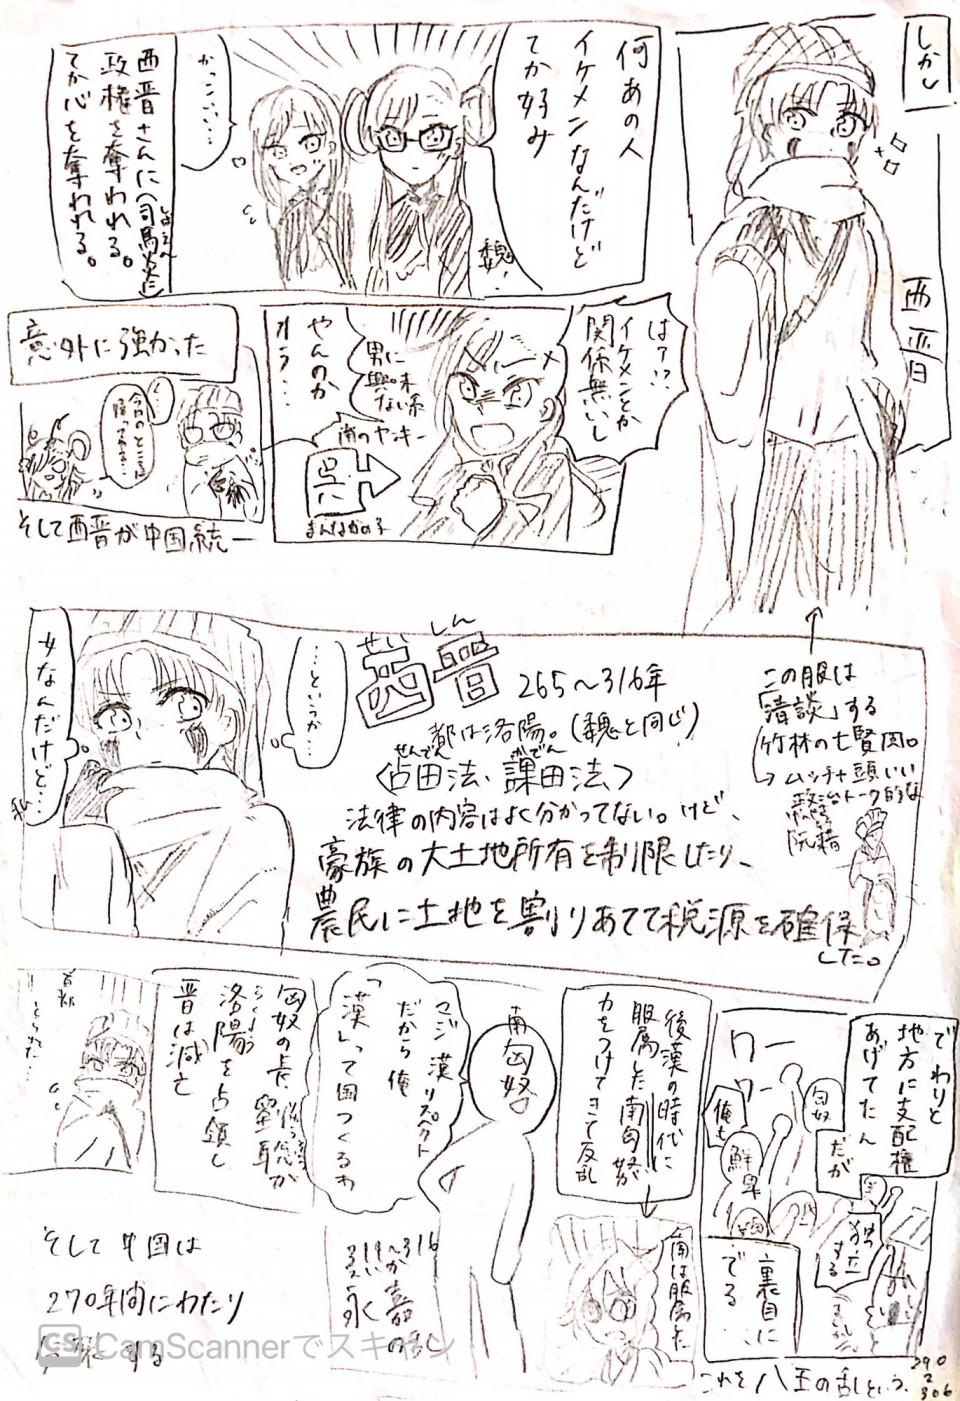 しかし
西晋
何あの人
イケメンなんだけど
てか好み
魏!
かっこいい…
西晋さんに(司馬炎に)
政権を奪われる。
てか心を奪われる。
はァ??
イケメンとか
関係無いし
男に
興味
ない系
南のヤンキー
やんのか
オラ…
呉
まんなかの子
意外に強かった
く…
今日のところは
そして西晋が中国統一
この服は
「清談」する
竹林の七賢風。
→ムッチャ頭いい
政治トーク的な
阮籍
…というか…
女なんだけど…
せい しん
西晋
265〜316年
都は洛陽。(魏と同じ)
せんでん かでん
<占田法、課田法>
法律の内容はよく分かってない。けど、
豪族の大土地所有を制限したり、
農民に土地を割りあてて税源を確保
した。
でわりと
地方に支配権
あげてたん
だが
ワー
ワー
匈奴
俺も
鮮卑
独立
する
裏目に
でる
これを八王の乱という。
290
2
306
後漢の時代に
服属した南匈奴が
力をつけてきて反乱
南は服属した
南匈奴
マジ漢リスペクト
だから俺
「漢」って国つくるわ
311〜316
永嘉の乱
匈奴の長、劉聡が
らくよう
洛陽を占領し
晋は滅亡
首都
とられた…
そして中国は
270年間にわたり
する
CS CamScannerでスキャン